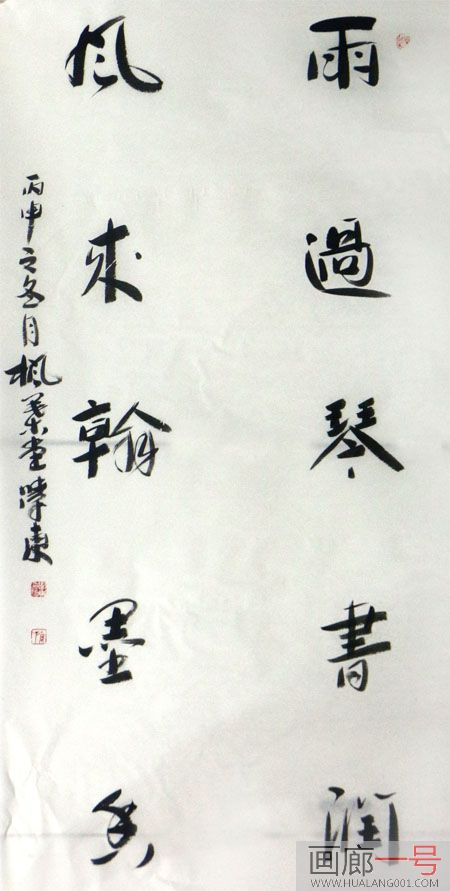 雨過琴書潤
風來翰墨香
丙申之冬月楓葉堂
画廊一号
WWW.HUALANG001.COM